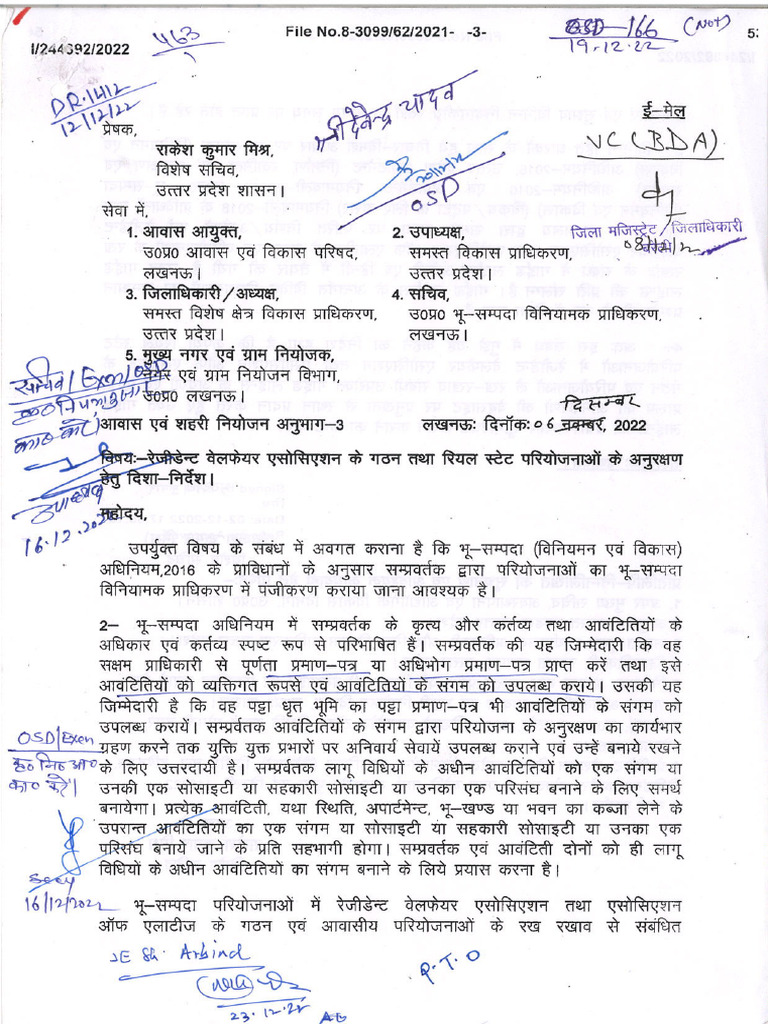 File No.8-3099/62/2021- -3-
OSD-166 (Not)
19.12.22
53
I/244692/2022
463
DR.1412
12/12/22
श्री देवेन्द्र यादव
OSD
ई–मेल
VC (BDA)
जिला मजिस्ट्रेट/जिलाधिकारी
प्रेषक,
राकेश कुमार मिश्र,
विशेष सचिव,
उत्तर प्रदेश शासन।
सेवा में,
1. आवास आयुक्त,
उ0प्र0 आवास एवं विकास परिषद,
लखनऊ।
2. उपाध्यक्ष,
समस्त विकास प्राधिकरण,
उत्तर प्रदेश।
3. जिलाधिकारी/अध्यक्ष,
समस्त विशेष क्षेत्र विकास प्राधिकरण,
उत्तर प्रदेश।
4. सचिव,
उ0प्र0 भू–सम्पदा विनियामक प्राधिकरण,
लखनऊ।
5. मुख्य नगर एवं ग्राम नियोजक,
नगर एवं ग्राम नियोजन विभाग
उ0प्र0 लखनऊ।
सचिव/Exen/OSD
उपाध्यक्ष
16.12.2022
दिसम्बर
आवास एवं शहरी नियोजन अनुभाग–3 लखनऊः दिनॉकः 06 नवम्बर, 2022
विषयः–रेजीडेन्ट वेलफेयर एसोसिएशन के गठन तथा रियल स्टेट परियोजनाओं के अनुरक्षण
हेतु दिशा–निर्देश।
महोदय,
उपर्युक्त विषय के संबंध में अवगत कराना है कि भू–सम्पदा (विनियमन एवं विकास)
अधिनियम,2016 के प्राविधानों के अनुसार सम्प्रवर्तक द्वारा परियोजनाओं का भू–सम्पदा
विनियामक प्राधिकरण में पंजीकरण कराया जाना आवश्यक है।
2– भू–सम्पदा अधिनियम में सम्प्रवर्तक के कृत्य और कर्तव्य तथा आवंटितियों के
अधिकार एवं कर्तव्य स्पष्ट रूप से परिभाषित हैं। सम्प्रवर्तक की यह जिम्मेदारी कि वह
सक्षम प्राधिकारी से पूर्णता प्रमाण–पत्र या अधिभोग प्रमाण–पत्र प्राप्त करें तथा इसे
आवंटितियों को व्यक्तिगत रूपसे एवं आवंटितियों के संगम को उपलब्ध कराये। उसकी यह
जिम्मेदारी है कि वह पट्टा धृत भूमि का पट्टा प्रमाण–पत्र भी आवंटितियों के संगम को
उपलब्ध करायें। सम्प्रर्वतक आवंटितियों के संगम द्वारा परियोजना के अनुरक्षण का कार्यभार
ग्रहण करने तक युक्ति युक्त प्रभारों पर अनिवार्य सेवायें उपलब्ध कराने एवं उन्हें बनाये रखने
के लिए उत्तरदायी है। सम्प्रवर्तक लागू विधियों के अधीन आवंटितियों को एक संगम या
उनकी एक सोसाइटी या सहकारी सोसाइटी या उनका एक परिसंघ बनाने के लिए समर्थ
बनायेगा। प्रत्येक आवंटिती, यथा स्थिति, अपार्टमेन्ट, भू–खण्ड या भवन का कब्जा लेने के
उपरान्त आवंटितियों का एक संगम या सोसाइटी या सहकारी सोसाइटी या उनका एक
परिसंघ बनाये जाने के प्रति सहभागी होगा। सम्प्रवर्तक एवं आवंटिती दोनों को ही लागू
विधियों के अधीन आवंटितियों का संगम बनाने के लिये प्रयास करना है।
OSD/Exen
16/12/2022
भू–सम्पदा परियोजनाओं में रेजीडेन्ट वेलफेयर एसोसिएशन तथा एसोसिएशन
ऑफ एलाटीज के गठन एवं आवासीय परियोजनाओं के रख रखाव से संबंधित
JE Sh. Arbind
23.12.22
AE
P.T.O